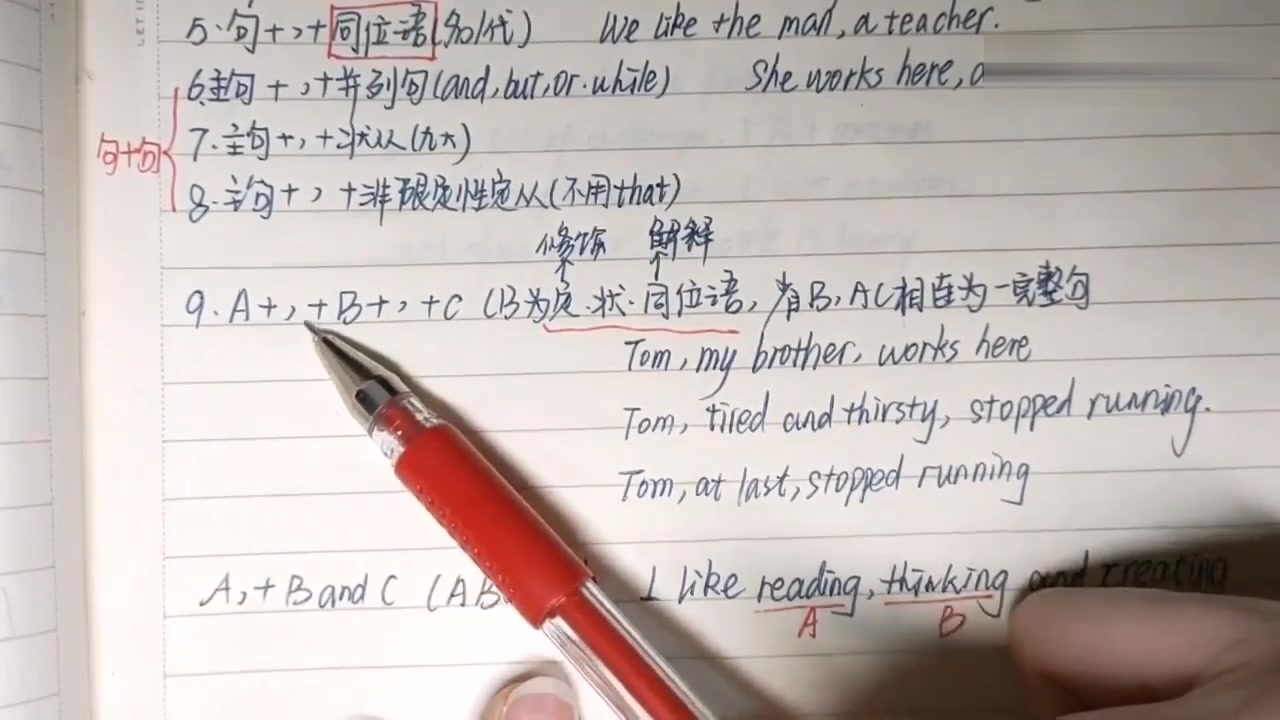 5.句+,+同位语(名/代) We like the man, a teacher.
6.主句+,+并列句(and,but,or.while) She works here, a
句+句
7.主句+,+状从(九大)
8.主句+,+非限定性定从(不用that)
修饰 解释
9.A+,+B+,+C(B为定.状.同位语,省B,AC相连为一完整句
Tom, my brother, works here
Tom, tired and thirsty, stopped running.
Tom, at last, stopped running
A,+B and C (AB I like reading, thinking and creating
A B